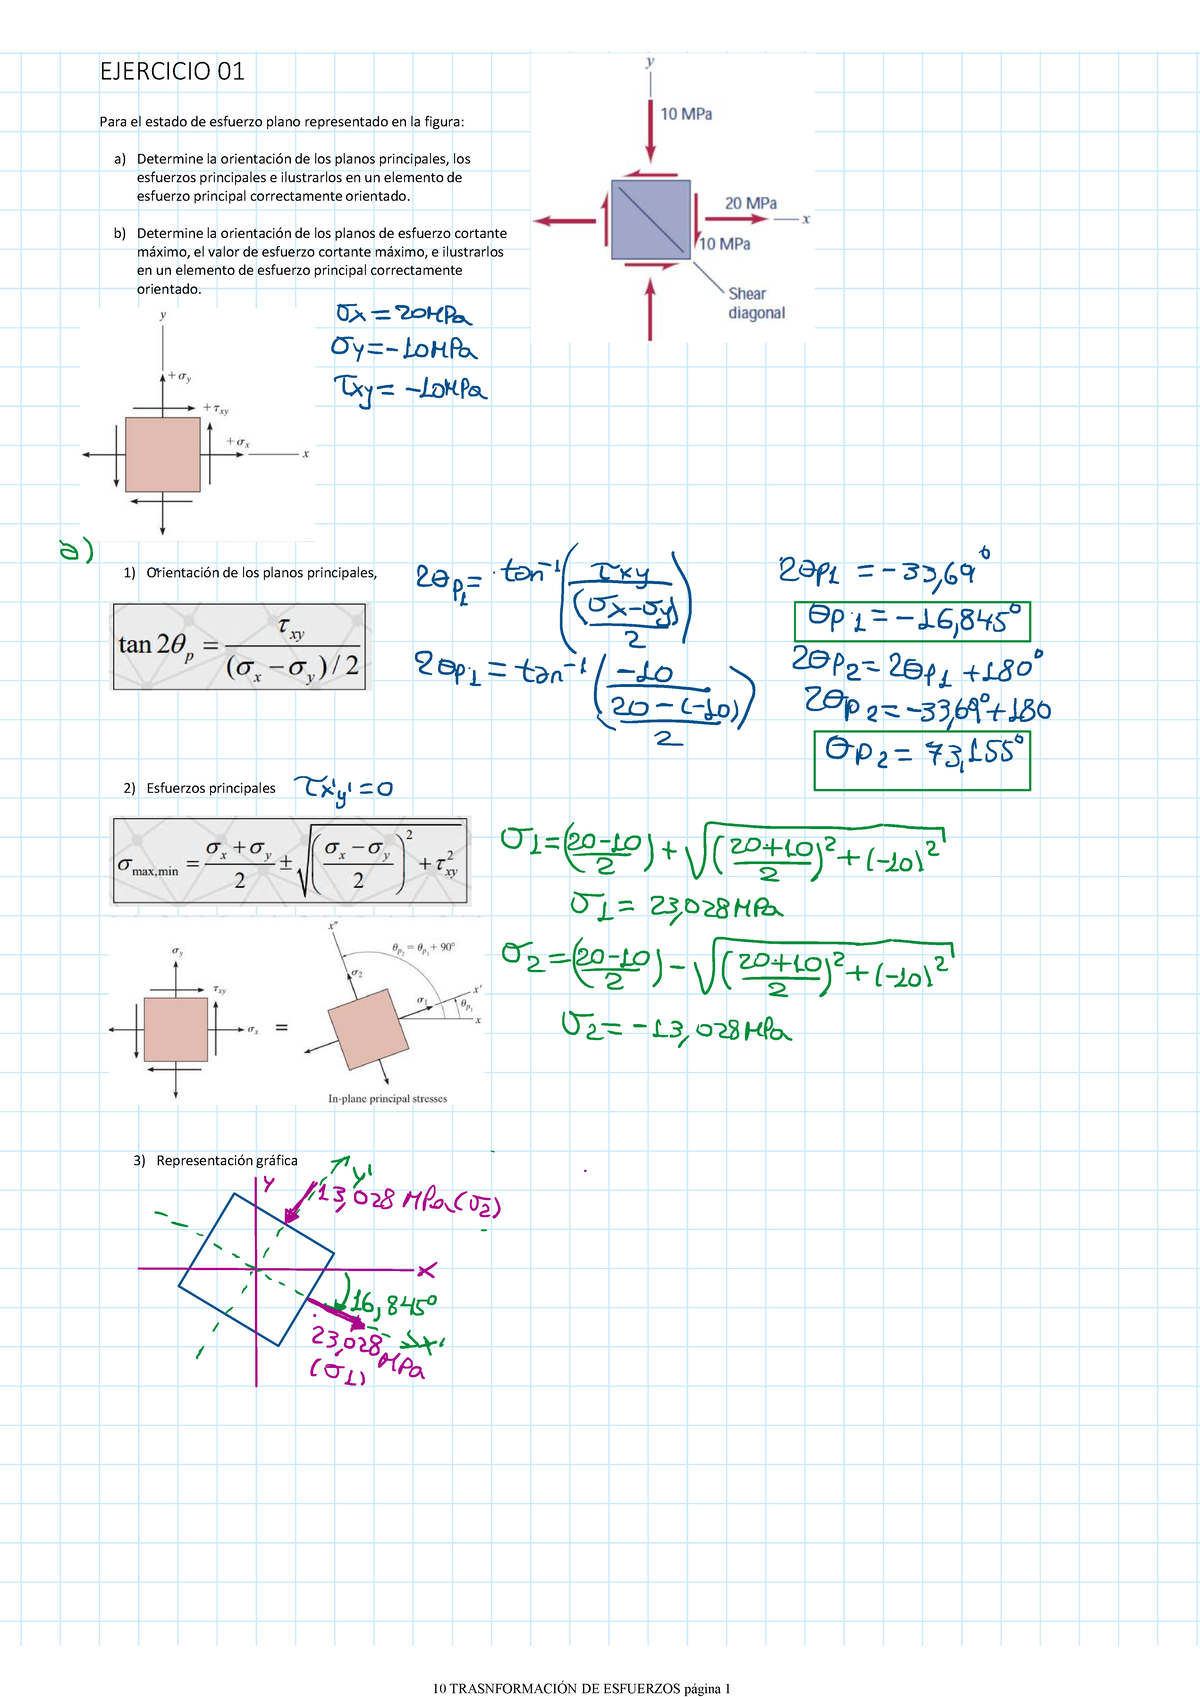 EJERCICIO 01
Para el estado de esfuerzo plano representado en la figura:
a) Determine la orientación de los planos principales, los
esfuerzos principales e ilustrarlos en un elemento de
esfuerzo principal correctamente orientado.
b) Determine la orientación de los planos de esfuerzo cortante
máximo, el valor de esfuerzo cortante máximo, e ilustrarlos
en un elemento de esfuerzo principal correctamente
orientado.
y
10 MPa
20 MPa
x
10 MPa
Shear
diagonal
σx = 20MPa
σy = -10MPa
τxy = -10MPa
y
+σy
+τxy
+σx
x
a)
1) Orientación de los planos principales,
tan 2θp = τxy / (σx − σy) / 2
2θp1 = tan⁻¹ (τxy / ((σx-σy) / 2))
2θp1 = tan⁻¹ (-10 / ((20-(-10)) / 2))
2θp1 = -33,69°
θp1 = -16,845°
2θp2 = 2θp1 + 180°
2θp2 = -33,69° + 180
θp2 = 73,155°
2) Esfuerzos principales
τx'y' = 0
σmax,min = (σx + σy) / 2 ± √(((σx − σy) / 2)² + τ²xy)
σ1 = ((20-10) / 2) + √(((20+10) / 2)² + (-10)²)
σ1 = 23,028MPa
σ2 = ((20-10) / 2) - √(((20+10) / 2)² + (-10)²)
σ2 = -13,028MPa
σy
τxy
σx
=
x"
θp2 = θp1 + 90°
σ2
σ1
x'
θp1
x
In-plane principal stresses
3) Representación gráfica
y
y'
13,028 MPa (σ2)
x
16,845°
x'
23,028 MPa
(σ1)
10 TRASNFORMACIÓN DE ESFUERZOS página 1